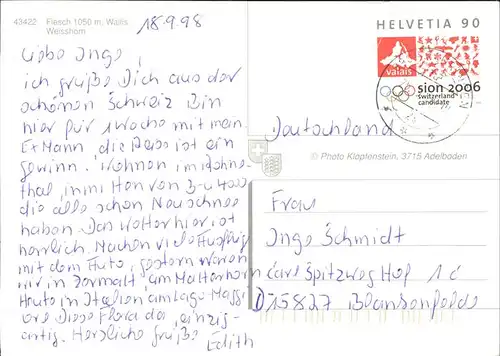 43422 Fiesch 1050 m, Wallis
Weisshorn
18.9.98
Liebe Inge,
ich grüße Dich aus der
schönen Schweiz Bin
hier für 1 Woche mit mein.
Ex Mann die Reise ist ein
gewinn. Wohnen im Rohne-
thal, inmitten von 3-u 4000
die alle schon Neuschnee
haben Das Wetter hier ist
herrlich. Machen viele Ausflüge
mit dem Auto, gestern waren
wir in Zermatt am Matterhorn
Heute in Italien am Lago-Magg-
ore Diese Flora da, einzig-
artig. Herzliche Grüße
Edith
HELVETIA 90
valais
sion 2006
switzerland
candidate
Deutschland
© Photo Klopfenstein, 3715 Adelboden
Frau
Inge Schmidt
Carl Spitzweg Hof 1c
D 15827 Blankenfelde